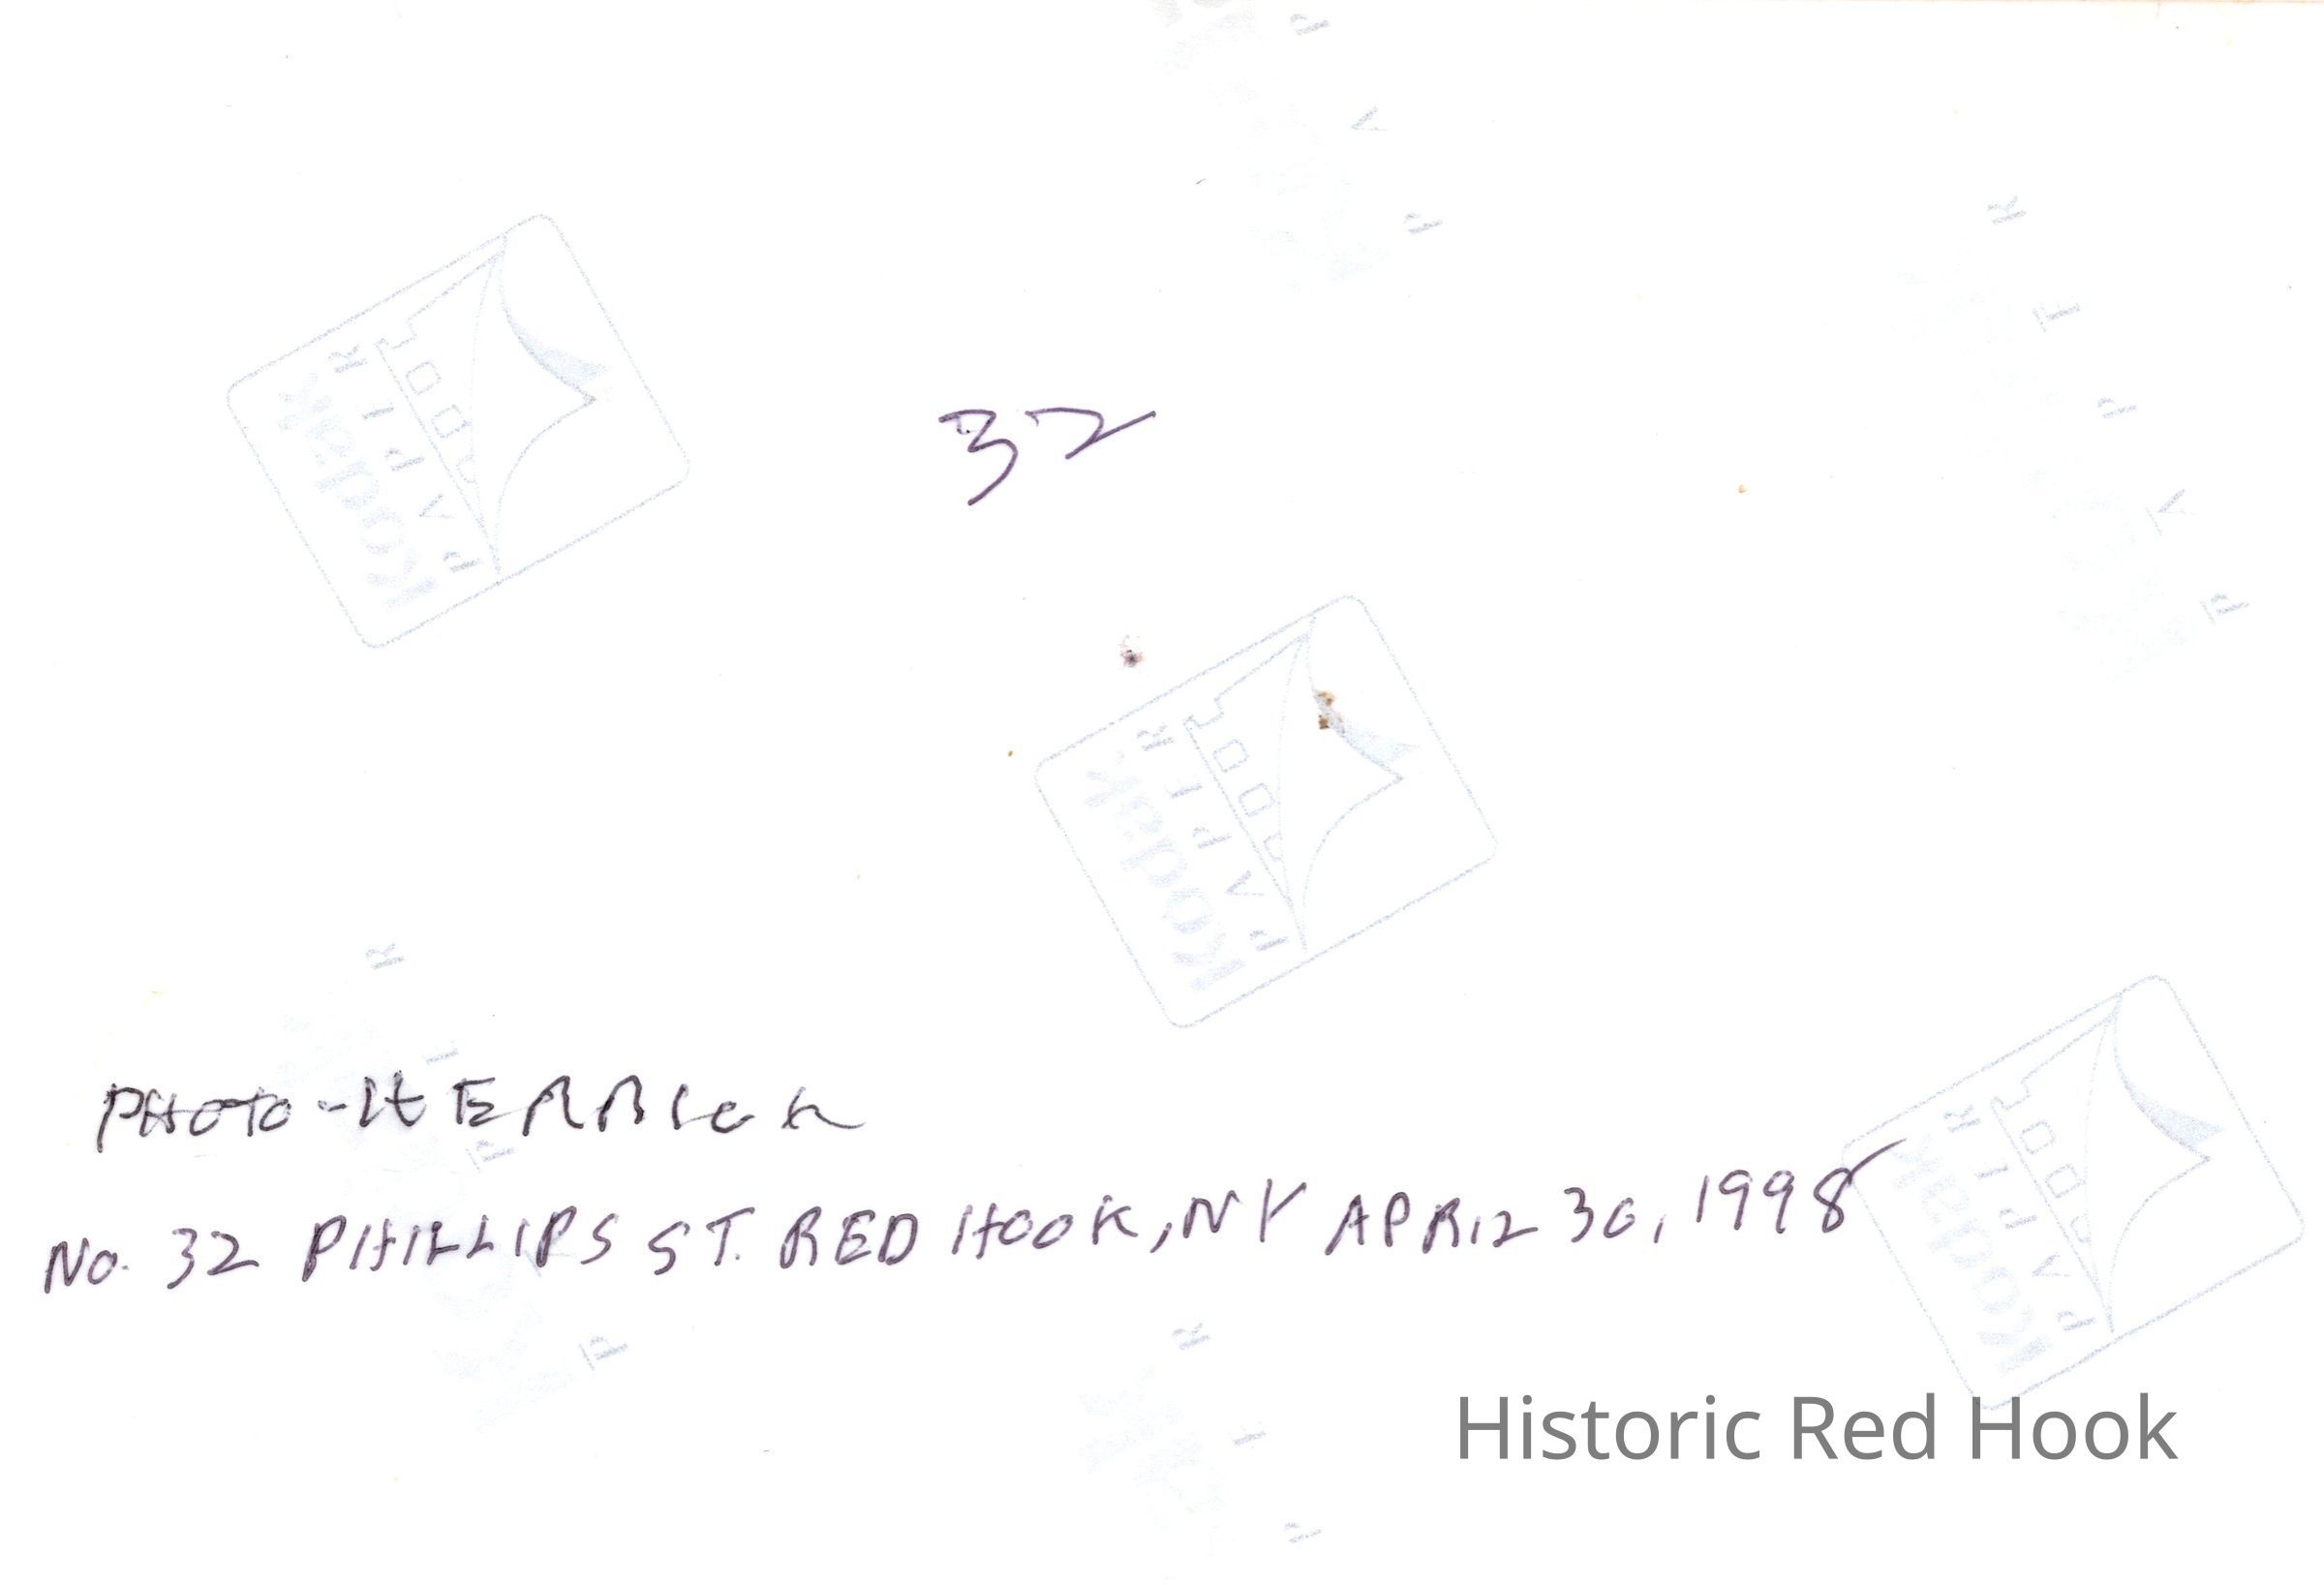 32
Kodak
PAPER
Kodak
PAPER
PHOTO-HERRICK
No. 32 PHILLIPS ST. RED HOOK, NY APRIL 30, 1998
Kodak
PAPER
Historic Red Hook